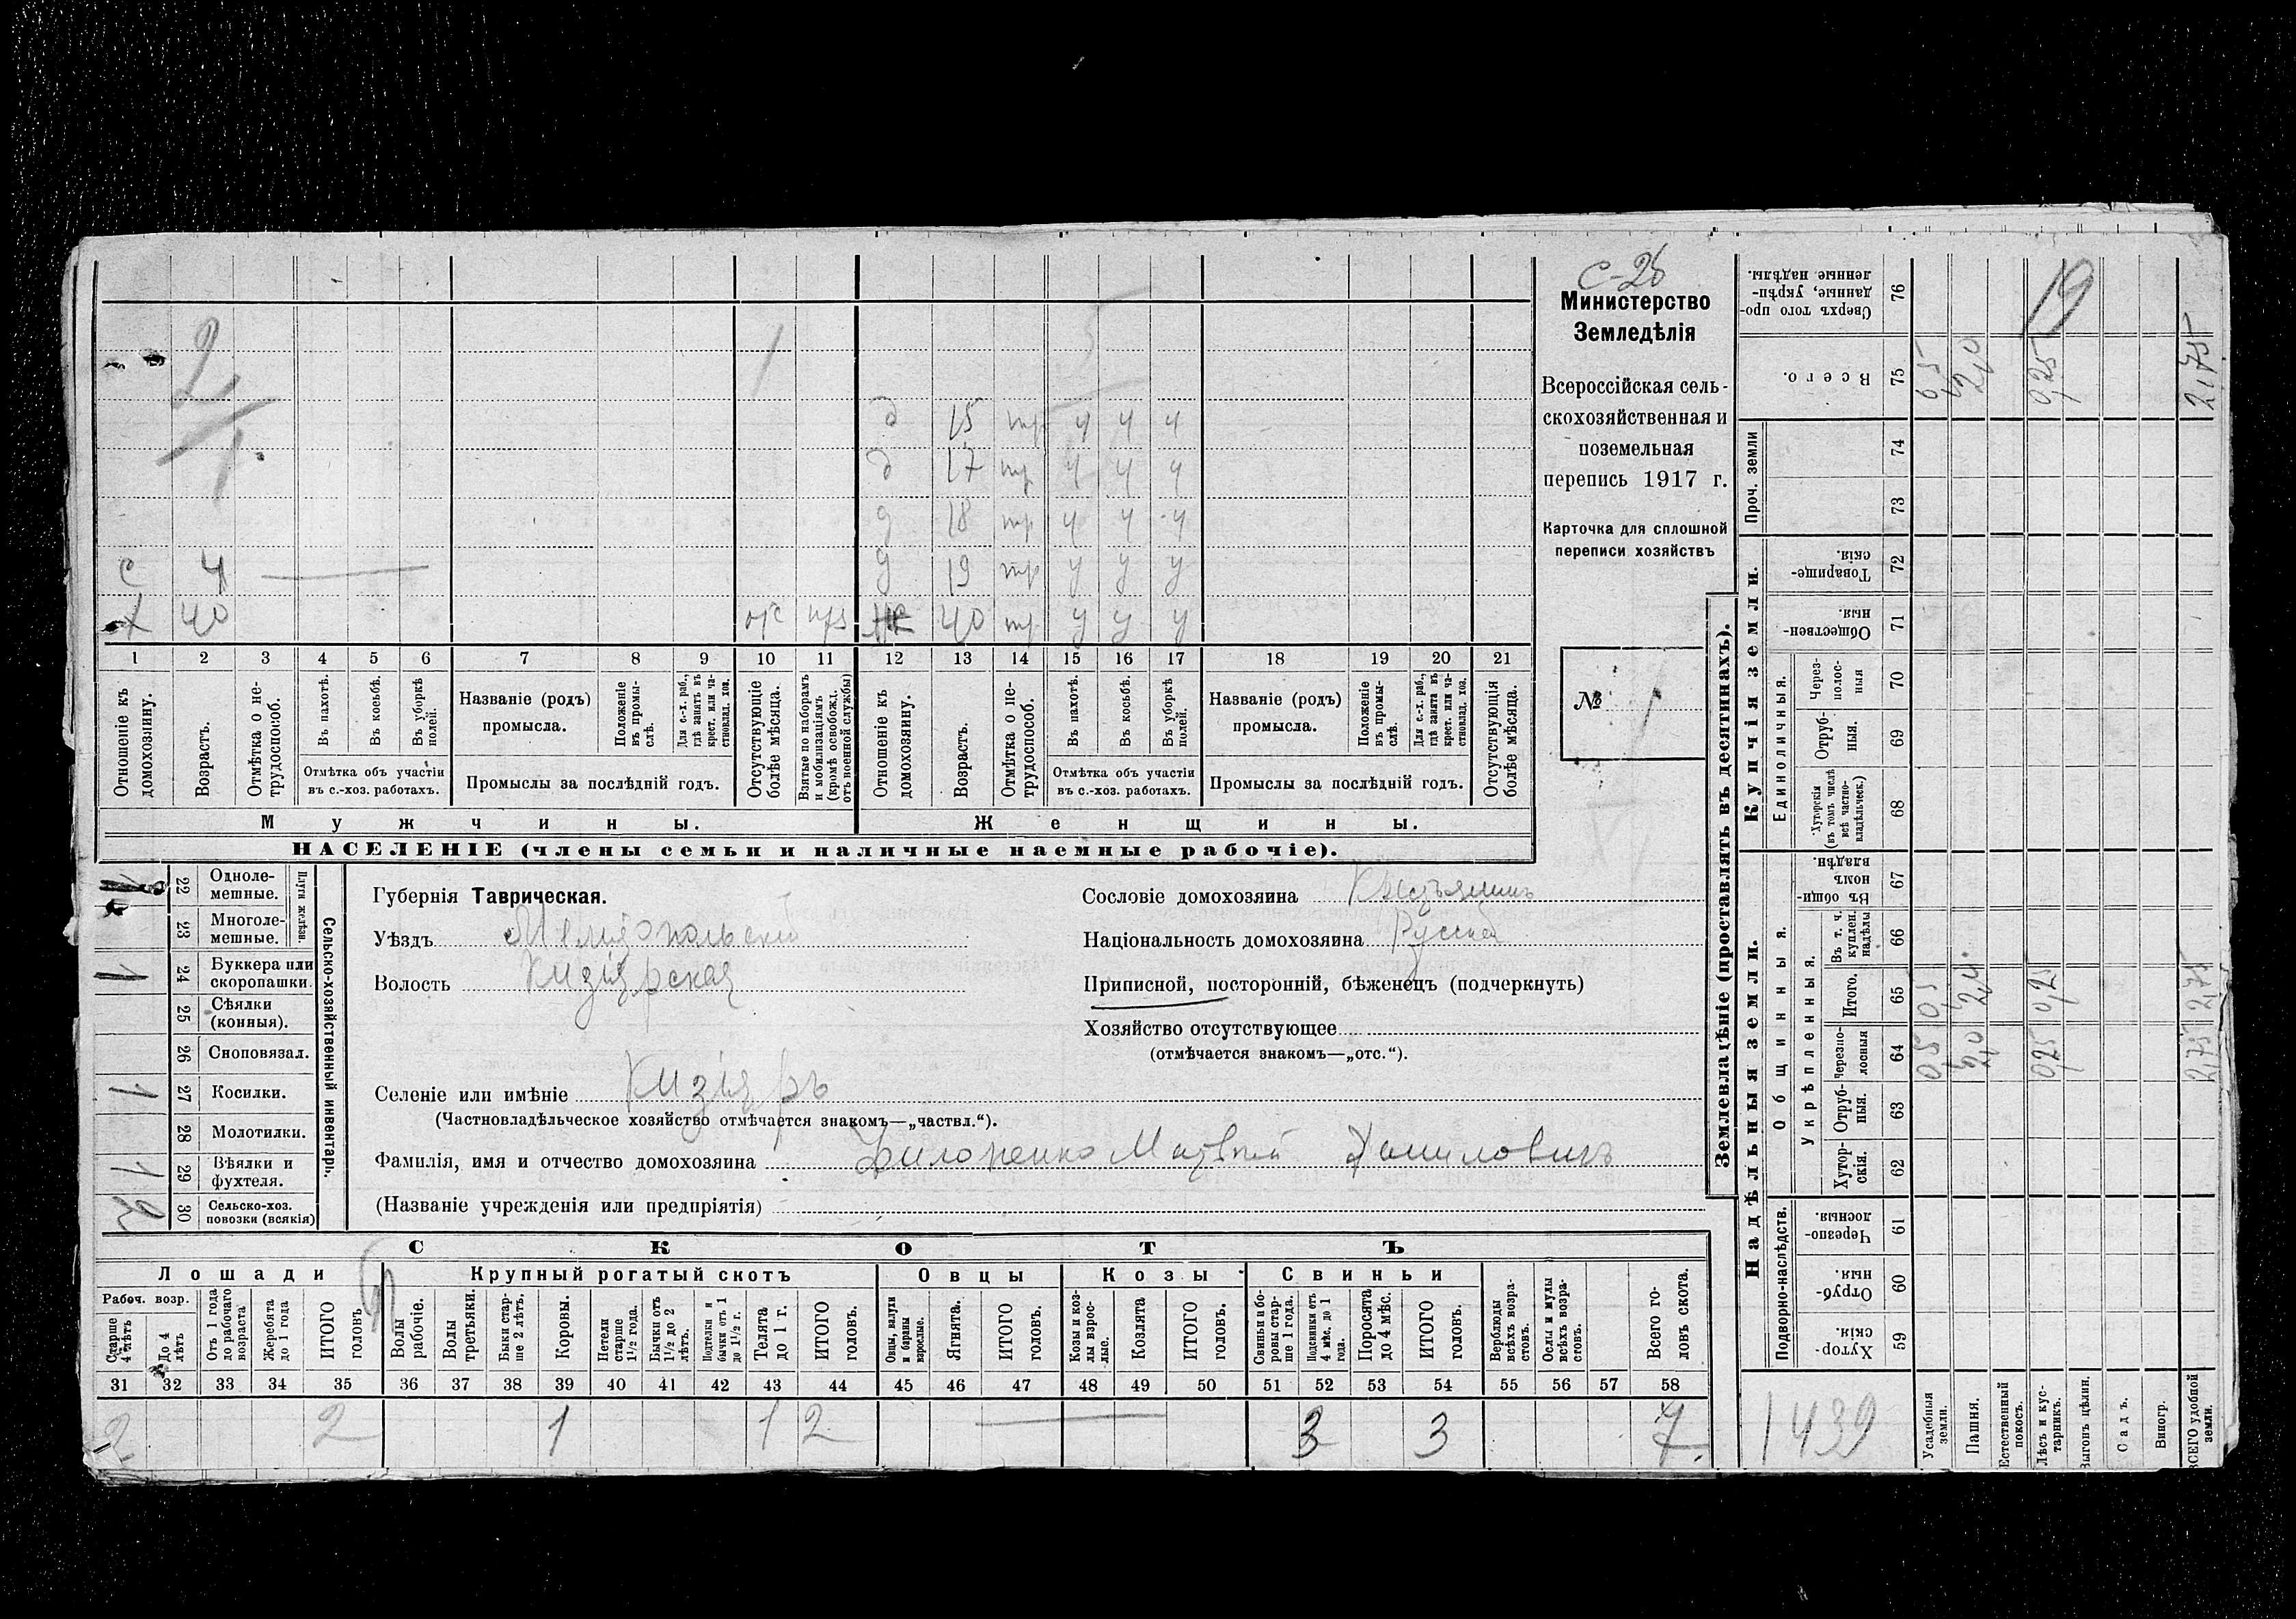 С-26
Министерство
Земледѣлія
Всероссійская сель-
скохозяйственная и
поземельная
перепись 1917 г.
Карточка для сплошной
переписи хозяйствъ
№ 1
2
1
1
5
д 15 тр у у у
д 17 тр у у у
д 18 тр у у у
с 4 д 19 тр у у у
х 40 отс ж 40 тр у у у
1 2 3 4 5 6 7 8 9 10 11 12 13 14 15 16 17 18 19 20 21
Отношеніе къ домохозяину.
Возрастъ.
Отмѣтка о не-трудоспособ.
Въ пахотѣ.
Въ косьбѣ.
Въ уборкѣ полей.
Отмѣтка объ участіи
въ с.-хоз. работахъ.
Названіе (родъ)
промысла.
Положеніе въ промы-слѣ.
Для с.-х. раб., гдѣ занятъ въ крест. или ча-стновлад. хоз.
Промыслы за послѣдній годъ.
Отсутствующіе болѣе мѣсяца.
Взятые по наборамъ и мобилизаціямъ (кромѣ освобожд. отъ военной службы)
Отношеніе къ домохозяину.
Возрастъ.
Отмѣтка о не-трудоспособ.
Въ пахотѣ.
Въ косьбѣ.
Въ уборкѣ полей.
Отмѣтка объ участіи
въ с.-хоз. работахъ.
Названіе (родъ)
промысла.
Положеніе въ промы-слѣ.
Для с.-х. раб., гдѣ занята въ крест. или ча-стновлад. хоз.
Промыслы за послѣдній годъ.
Отсутствующія болѣе мѣсяца.
Мужчины.
Женщины.
НАСЕЛЕНІЕ (члены семьи и наличные наемные рабочіе).
Сельско-хозяйственный инвентарь.
Плуги желѣзн.
1 22 Однолемешные.
23 Многолемешные.
1 24 Буккера или скоропашки.
25 Сѣялки (конныя).
26 Сноповязал.
1 27 Косилки.
28 Молотилки.
1 29 Вѣялки и фухтеля.
2 30 Сельско-хоз. повозки (всякія)
Губернія Таврическая.
Уѣздъ Мелитопольский
Волость Кизіярская
Селеніе или имѣніе Кизіяръ
(Частновладѣльческое хозяйство отмѣчается знакомъ—„частвл.“).
Фамилія, имя и отчество домохозяина Филоненко Матвѣй Даниловичъ
(Названіе учрежденія или предпріятія)
Сословіе домохозяина Крестьянинъ
Національность домохозяина Русский
Приписной, посторонній, бѣженецъ (подчеркнуть)
Хозяйство отсутствующее
(отмѣчается знакомъ—„отс.“).
СКОТЪ
Лошади Крупный рогатый скотъ Овцы Козы Свиньи
Рабоч. возр.
Старше 4 лѣтъ
До 4 лѣтъ
Отъ 1 года до рабочаго возраста
Жеребята до 1 года
ИТОГО головъ
Волы рабочіе.
Волы третьяки.
Быки стар-ше 2 лѣтъ.
Коровы.
Нетели старше 1½ года.
Бычки отъ 1½ до 2 лѣтъ.
Подтелки и бычки отъ 1 до 1½ г.
Телята до 1 г.
ИТОГО головъ.
Овцы, валухи и бараны взрослые.
Ягнята.
ИТОГО головъ.
Козы и коз-лы взрос-лые.
Козлята
ИТОГО головъ.
Свиньи и бо-ровы стар-ше 1 года.
Подсвинки отъ 4 мѣс. до 1 года.
Поросята до 4 мѣс.
ИТОГО головъ.
Верблюды всѣхъ возра-стовъ.
Ослы и мулы всѣхъ возра-стовъ.
Всего го-ловъ скота.
31 32 33 34 35 36 37 38 39 40 41 42 43 44 45 46 47 48 49 50 51 52 53 54 55 56 57 58
2 2 1 1 2 3 3 7
Землевладѣніе (проставлять въ десятинахъ).
Надѣльныя земли.
Купчія земли.
Подворно-наслѣдств.
Общинныя.
Укрѣпленныя.
Единоличныя.
Проч. земли
Хутор-скія. 59
Отруб-ныя. 60
Черезпо-лосныя. 61
Хутор-скія. 62
Отруб-ныя. 63
Черезпо-лосныя 64
Итого. 65
Въ т. ч. куплен. надѣлы 66
Въ общин-номъ владѣн. 67
Хуторскія (въ томъ числѣ всѣ частно-владѣльческ.) 68
Отруб-ныя. 69
Через-полос-ныя 70
Обществен-ныя. 71
Товарище-скія. 72
73
74
Всего. 75
Сверхъ того про-данные, укрѣп-ленные надѣлы. 76
1439
Усадебныя земли. 0,5 0,5 0,5
Пашня. 2,0 2,0 2,0
Естественный покосъ.
Лѣсъ и кус-тарникъ. 0,25 0,25 0,25
Выгонъ цѣлин.
Садъ.
Виногр.
ВСЕГО удобной земли. 2,75 2,75 2,75
19